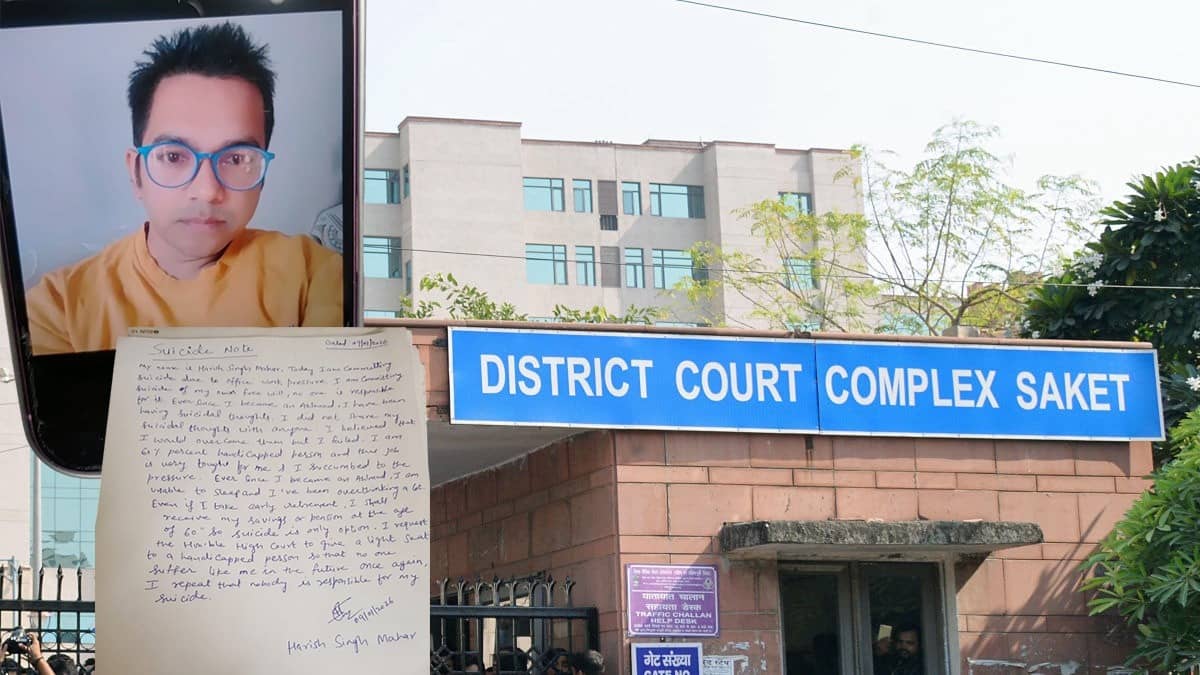 Suicide Note
Dated 09/01/2026
My name is Harish Singh Mahar. Today I am Committing
Suicide due to office work pressure. I am Committing
Suicide of my own free will, no one is responsible
for it. Ever Since I became an Ahlmad, I have been
having Suicidal thoughts. I did not share my
Suicidal thoughts with anyone. I believed that
I would overcome them but I failed. I am
60% percent handicapped person and this job
is very tought for me & I Succumbed to the
pressure. Ever Since I became an Ahlmad, I am
unable to sleep and I've been overthinking a lot.
Even if I take early retirement, I shall
receive my savings or pension at the age
of 60 so suicide is only option. I request
the Hon'ble High Court to give a light seat
to a handicapped person so that no one
suffer like me in the future once again,
I repeat that nobody is responsible for my
Suicide.
09/01/2026
Harish Singh Mahar
DISTRICT COURT COMPLEX SAKET
यातायात चालान
सहायता डेस्क
TRAFFIC CHALLAN
HELP DESK
गेट संख्या
GATE NO